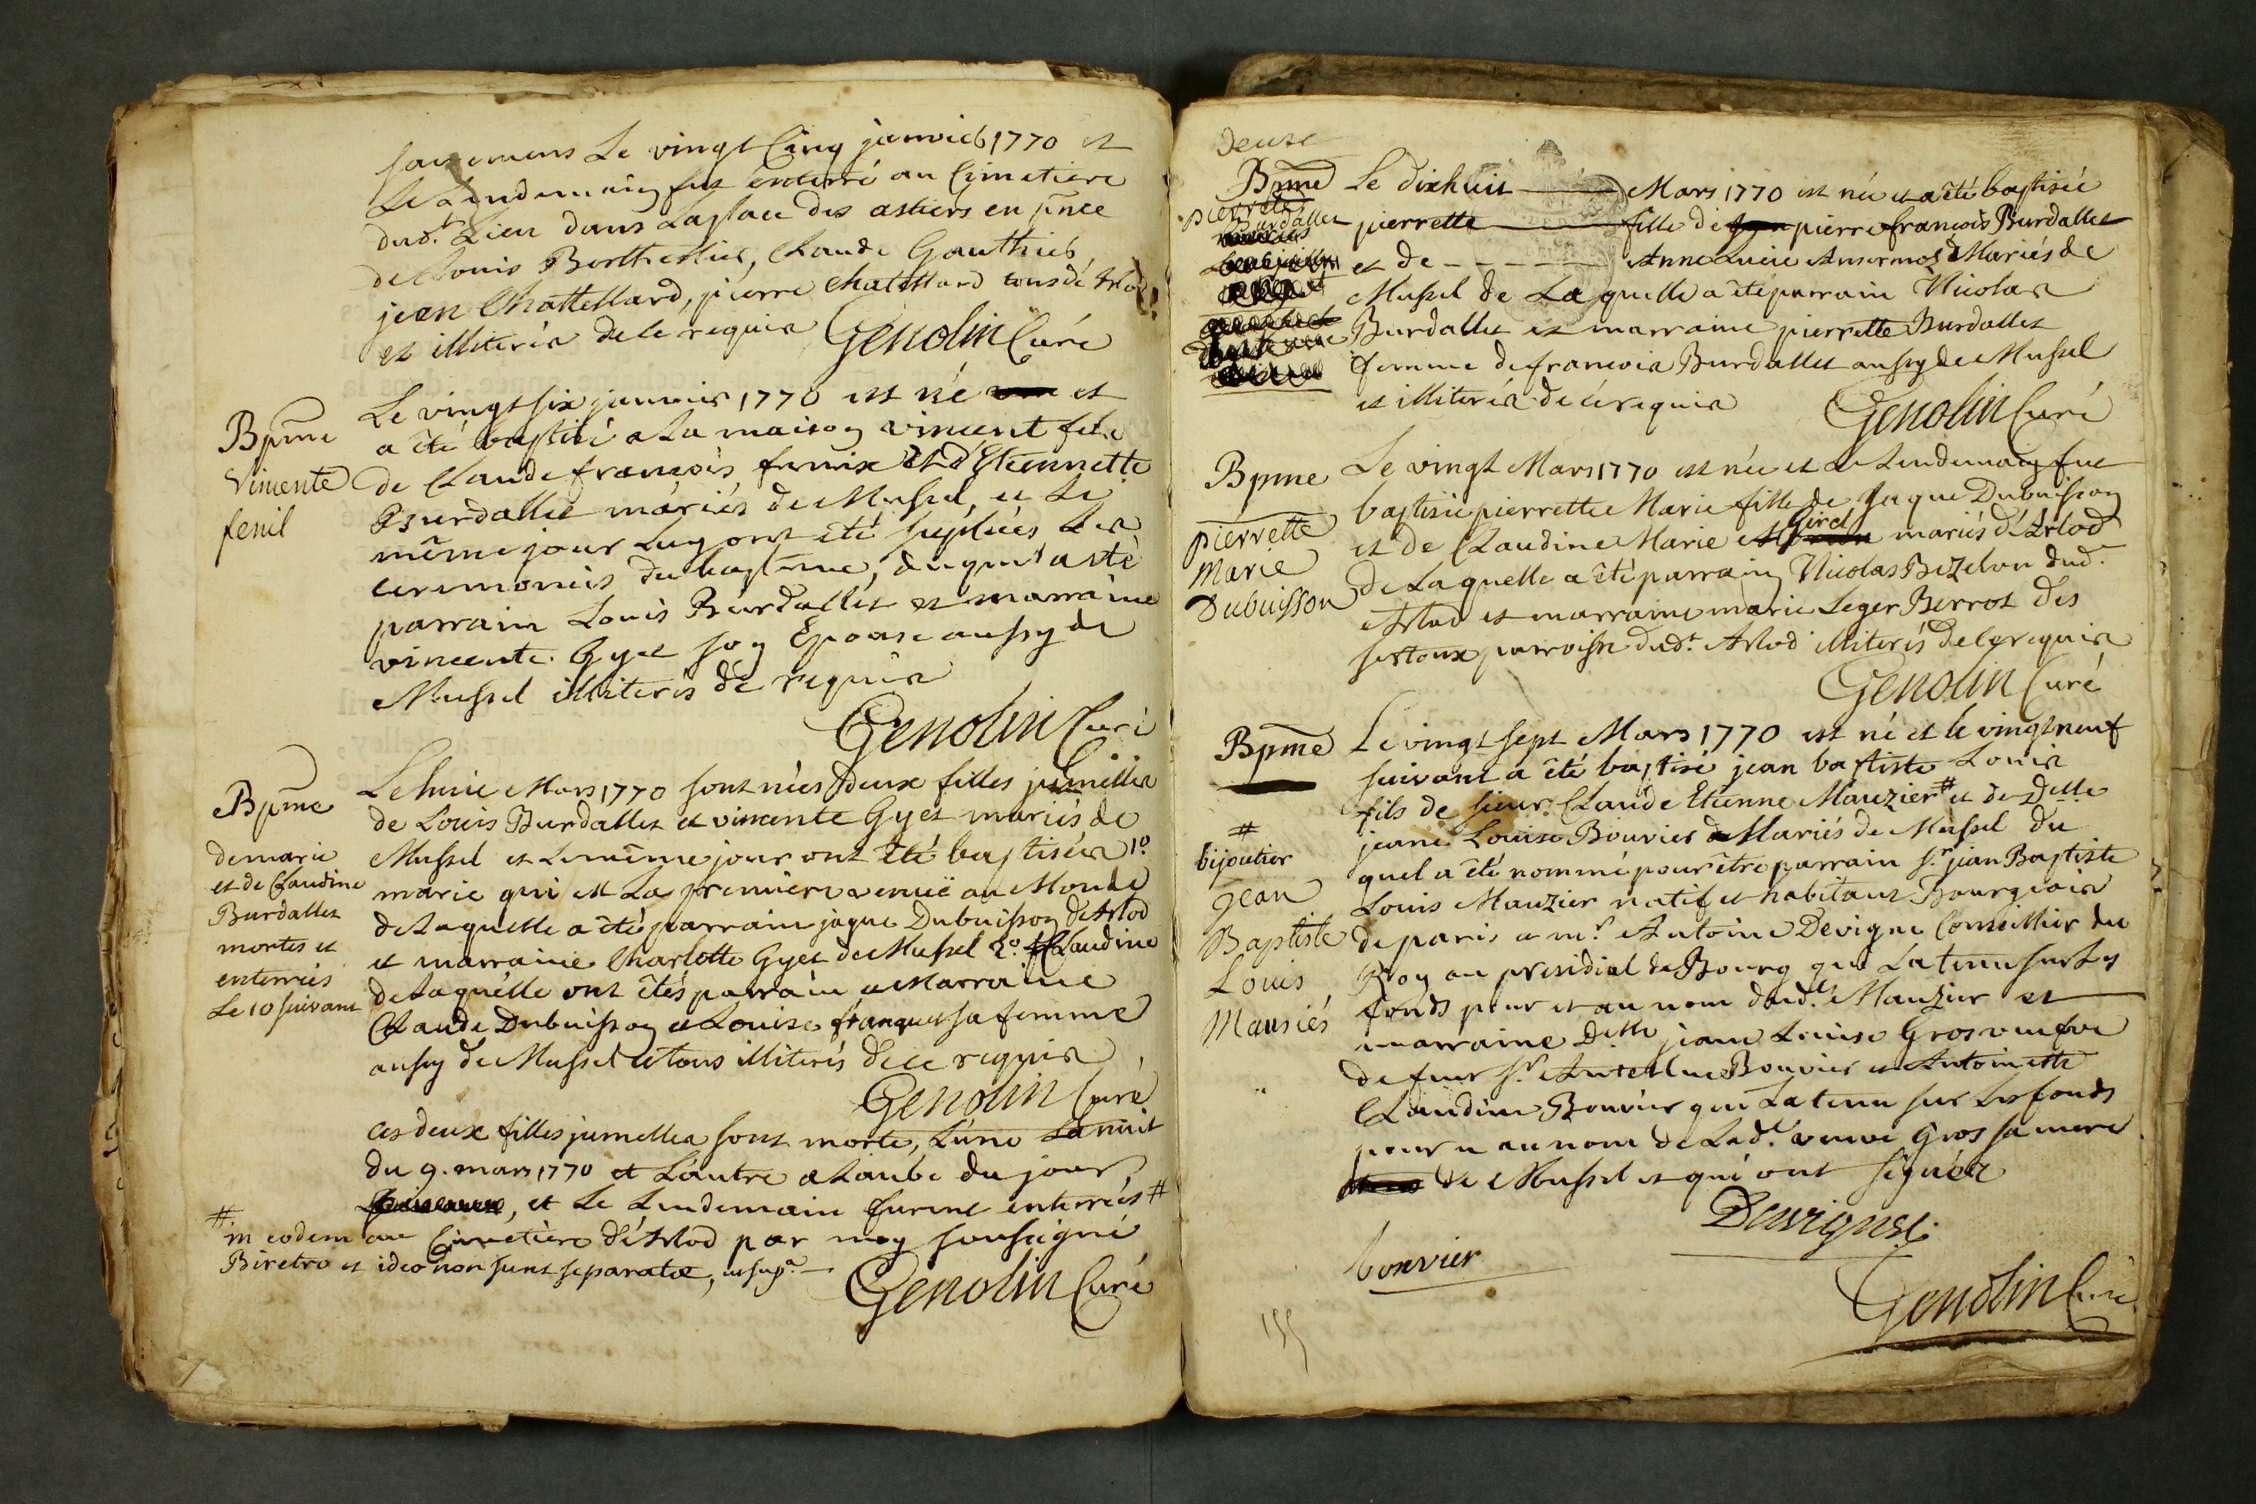 sacremens Le vingt Cinq janvier 1770 et
Le Lendemain fut enterré au Cimetiere
dud.t Lieu dans La place des astiers en p̃nce
de Louis Berthelier, Claude Gauthier
jean Chattellard, pierre Chatellard tous d'Arlod
et illiterés de le requis Genolin Curé
Bpme
Vincente
fenil
Le vingt six janvier 1770 est né et
a êté baptisé a La maison vincent fils
de Claude françois fenix et d'Etiennette
Burdallet mariés de Mussel, et Le
même jour luy ont êté suplées Les
ceremonies du baptême, duquel a êté
parrain Louis Burdallet et marraine
vincente Gyet son Epouse aussy de
Mussel illiterés de requis
Genolin Curé
Bpme
de marie
et de Claudine
Burdallet
mortes et
enterrés
Le 10 suivant
Le huit Mars 1770 sont nées deux filles jumelles
de Louis Burdallet et vincente Gyet mariés de
Mussel et Le même jour ont êté baptisées 1.o
marie qui est La premiere venuë au Monde
de Laquelle a êté parrain jaque Dubuisson d'Arlod
et marraine Charlotte Gyet de Mussel 2.o Claudine
de Laquelle ont êtés parrain et Marraine
Claude Dubuisson et Louise franquet sa femme
aussy de Mussel et tous illiterés de ce requis
Genolin Curé
ces deux filles jumelles sont morte, L'une La nuit
du 9. mars 1770 et L'autre a L'aube du jour
, et Le Lendemain furent enterrées #
au Cimetière d'Arlod par moy soussigné
# in eodem
Biretro et ideo non sunt separatæ, ut sup.a
Genolin Curé
deuse
Bpme
pierrette
Burdallet
Le dixhuit Mars 1770 est née et a êté baptisée
pierrette fille de pierre françois Burdallet
et de Anne Lucie Ansermod Mariés de
Mussel de Laquelle a êté parrain Nicolas
Burdallet et marraine pierrette Burdallet
femme de francois Burdallet aussy de Mussel
et illiterés de ce requis
Genolin Curé
Bpme
pierrette
Marie
Dubuisson
Le vingt Mars 1770 est née et Le Lendemain fut
baptisée pierrette Marie fille de Jaque Dubuisson
et de Claudine Marie Girel mariés d'Arlod
de Laquelle a êté parrain Nicolas Bezelon dud.t
Arlod et marraine marie Leger Berrot des
sertoux parroisse dud.t Arlod illiterés de le requis
Genolin Curé
Bpme
#
bijoutier
Jean
Baptiste
Louis
Mausiés
Le vingt sept Mars 1770 est né et le vingt neuf
suivant a êté baptisé jean baptiste Louis
fils de sieur Claude Etienne Mauzier # et de Delle
jeane Louise Bouvier Mariés de Mussel du
quel a êté nommé pour être parrain s.r jean Baptiste
Louis Mauzier natif et habitant Bourgeois
de paris et m.r Antoine Devigne Conseiller du
Roy au presidial de Bourg qui La tenu sur Les
fonds pour et au nom dud.t Mauzier et
marraine Delle jeane Louise Gros veufve
de feu s.r Antelme Bouvier et Antoinette
Claudine Bouvier qui La tenu sur Les fonds
pour et au nom de Lad.e veuve Gros sa mere
de Mussel et qui ont signés
Devigne
bouvier
Genolin Curé
155